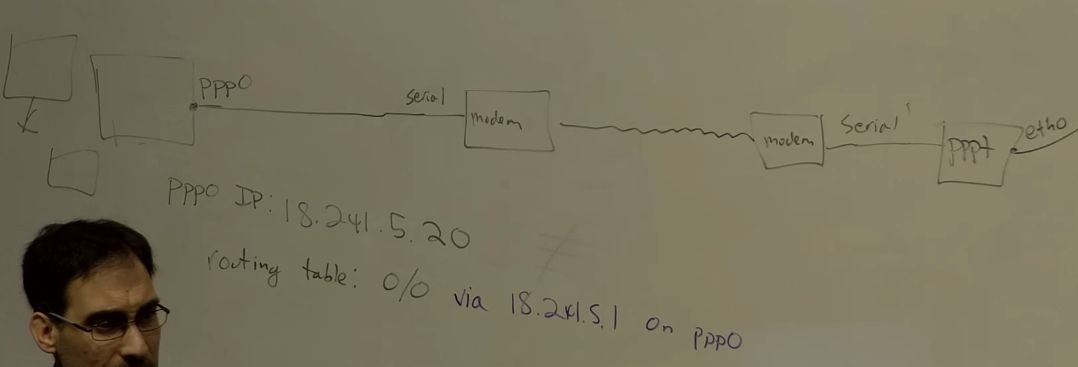 ppp0
serial
modem
modem
serial
eth0
ppp0 IP: 18.241.5.20
routing table: 0/0 via 18.241.5.1 on ppp0